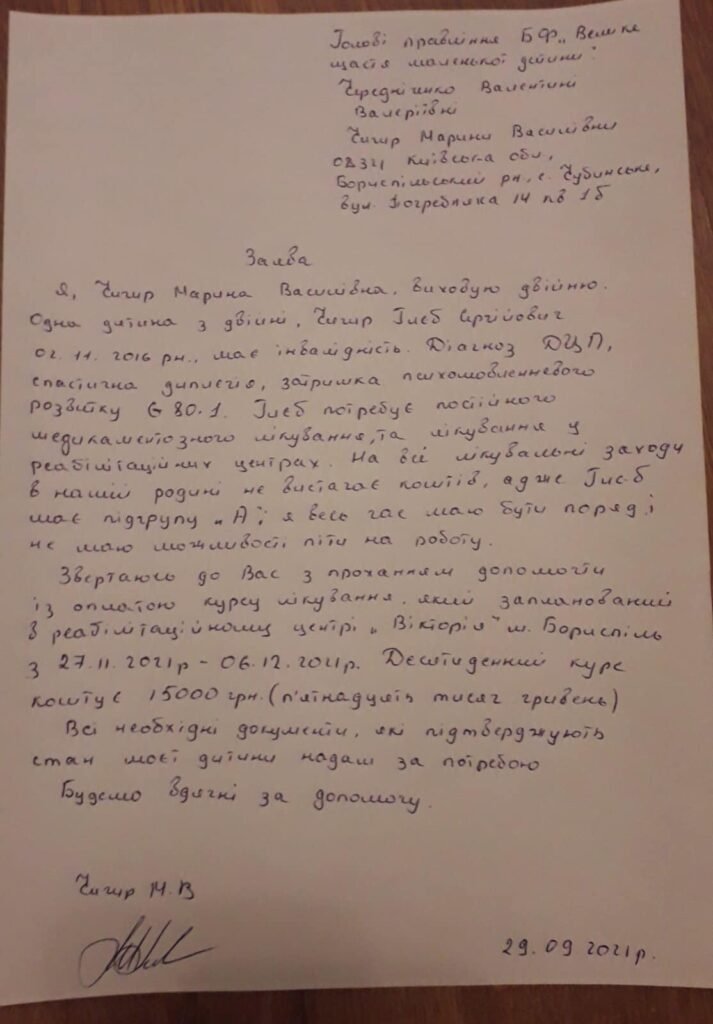 Голові правління БФ „Велике
щастя маленької дитини"
Чередніченко Валентині
Валеріївні
Чигир Марини Василівни
08321 Київська обл,
Бориспільський рн, с. Чубинське,
вул. Погребняка 14 кв 1б
Заява
Я, Чигир Марина Василівна, виховую двійню.
Одна дитина з двійні, Чигир Глєб Сергійович
02.11.2016 рн., має інвалідність. Діагноз ДЦП,
спастична диплегія, затримка психомовленневого
розвитку G 80.1. Глєб потребує постійного
медикаментозного лікування, та лікування у
реабілітаційних центрах. На всі лікувальні заходи
в нашій родині не вистагає коштів, адже Глєб
має підгрупу „А", я весь час маю бути поряд, і
не маю можливості піти на роботу.
Звертаюсь до Вас з проханням допомогти
із оплатою курсу лікування, який запланований
в реабілітаційному центрі „Вікторія" м. Бориспіль
з 27.11.2021р - 06.12.2021р. Десятиденний курс
коштує 15000 грн. (п'ятнадцять тисяч гривень)
Всі необхідні документи, які підтверджують
стан моєї дитини надам за потребою
Будемо вдячні за допомогу.
Чигир М.В
29.09.2021р.